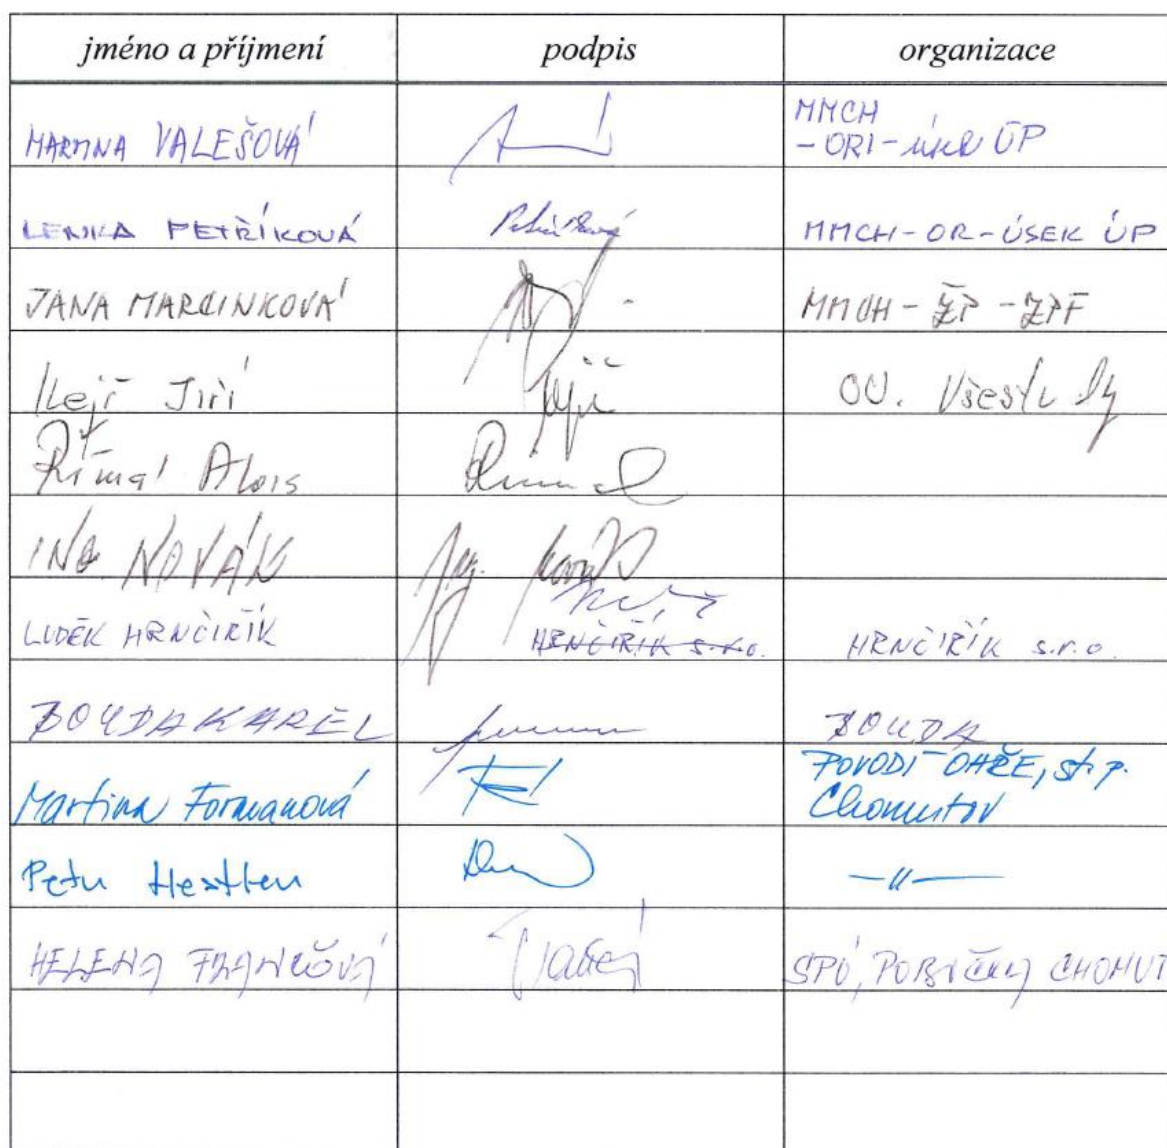 jméno a příjmení podpis organizace
MARTINA VALEŠOVÁ MMCH
- ORI - úsek ÚP
LENKA PETŘÍKOVÁ Petříková MMCH - OR - ÚSEK ÚP
JANA MARCINKOVÁ MMCH - ŽP - ZPF
Kejř Jiří Kejř OÚ. Všestudy
Římal Alois Římal
ING NOVÁK Ing. Novák
LUDĚK HRNČIŘÍK HRNČIŘÍK s.r.o. HRNČIŘÍK s.r.o.
BOUDA KAREL BOUDA
Martina Formanová POVODÍ OHŘE, st. p.
Chomutov
Petr —〃—
HELENA FRANCOVÁ SPÚ, POBOČKA CHOMUT